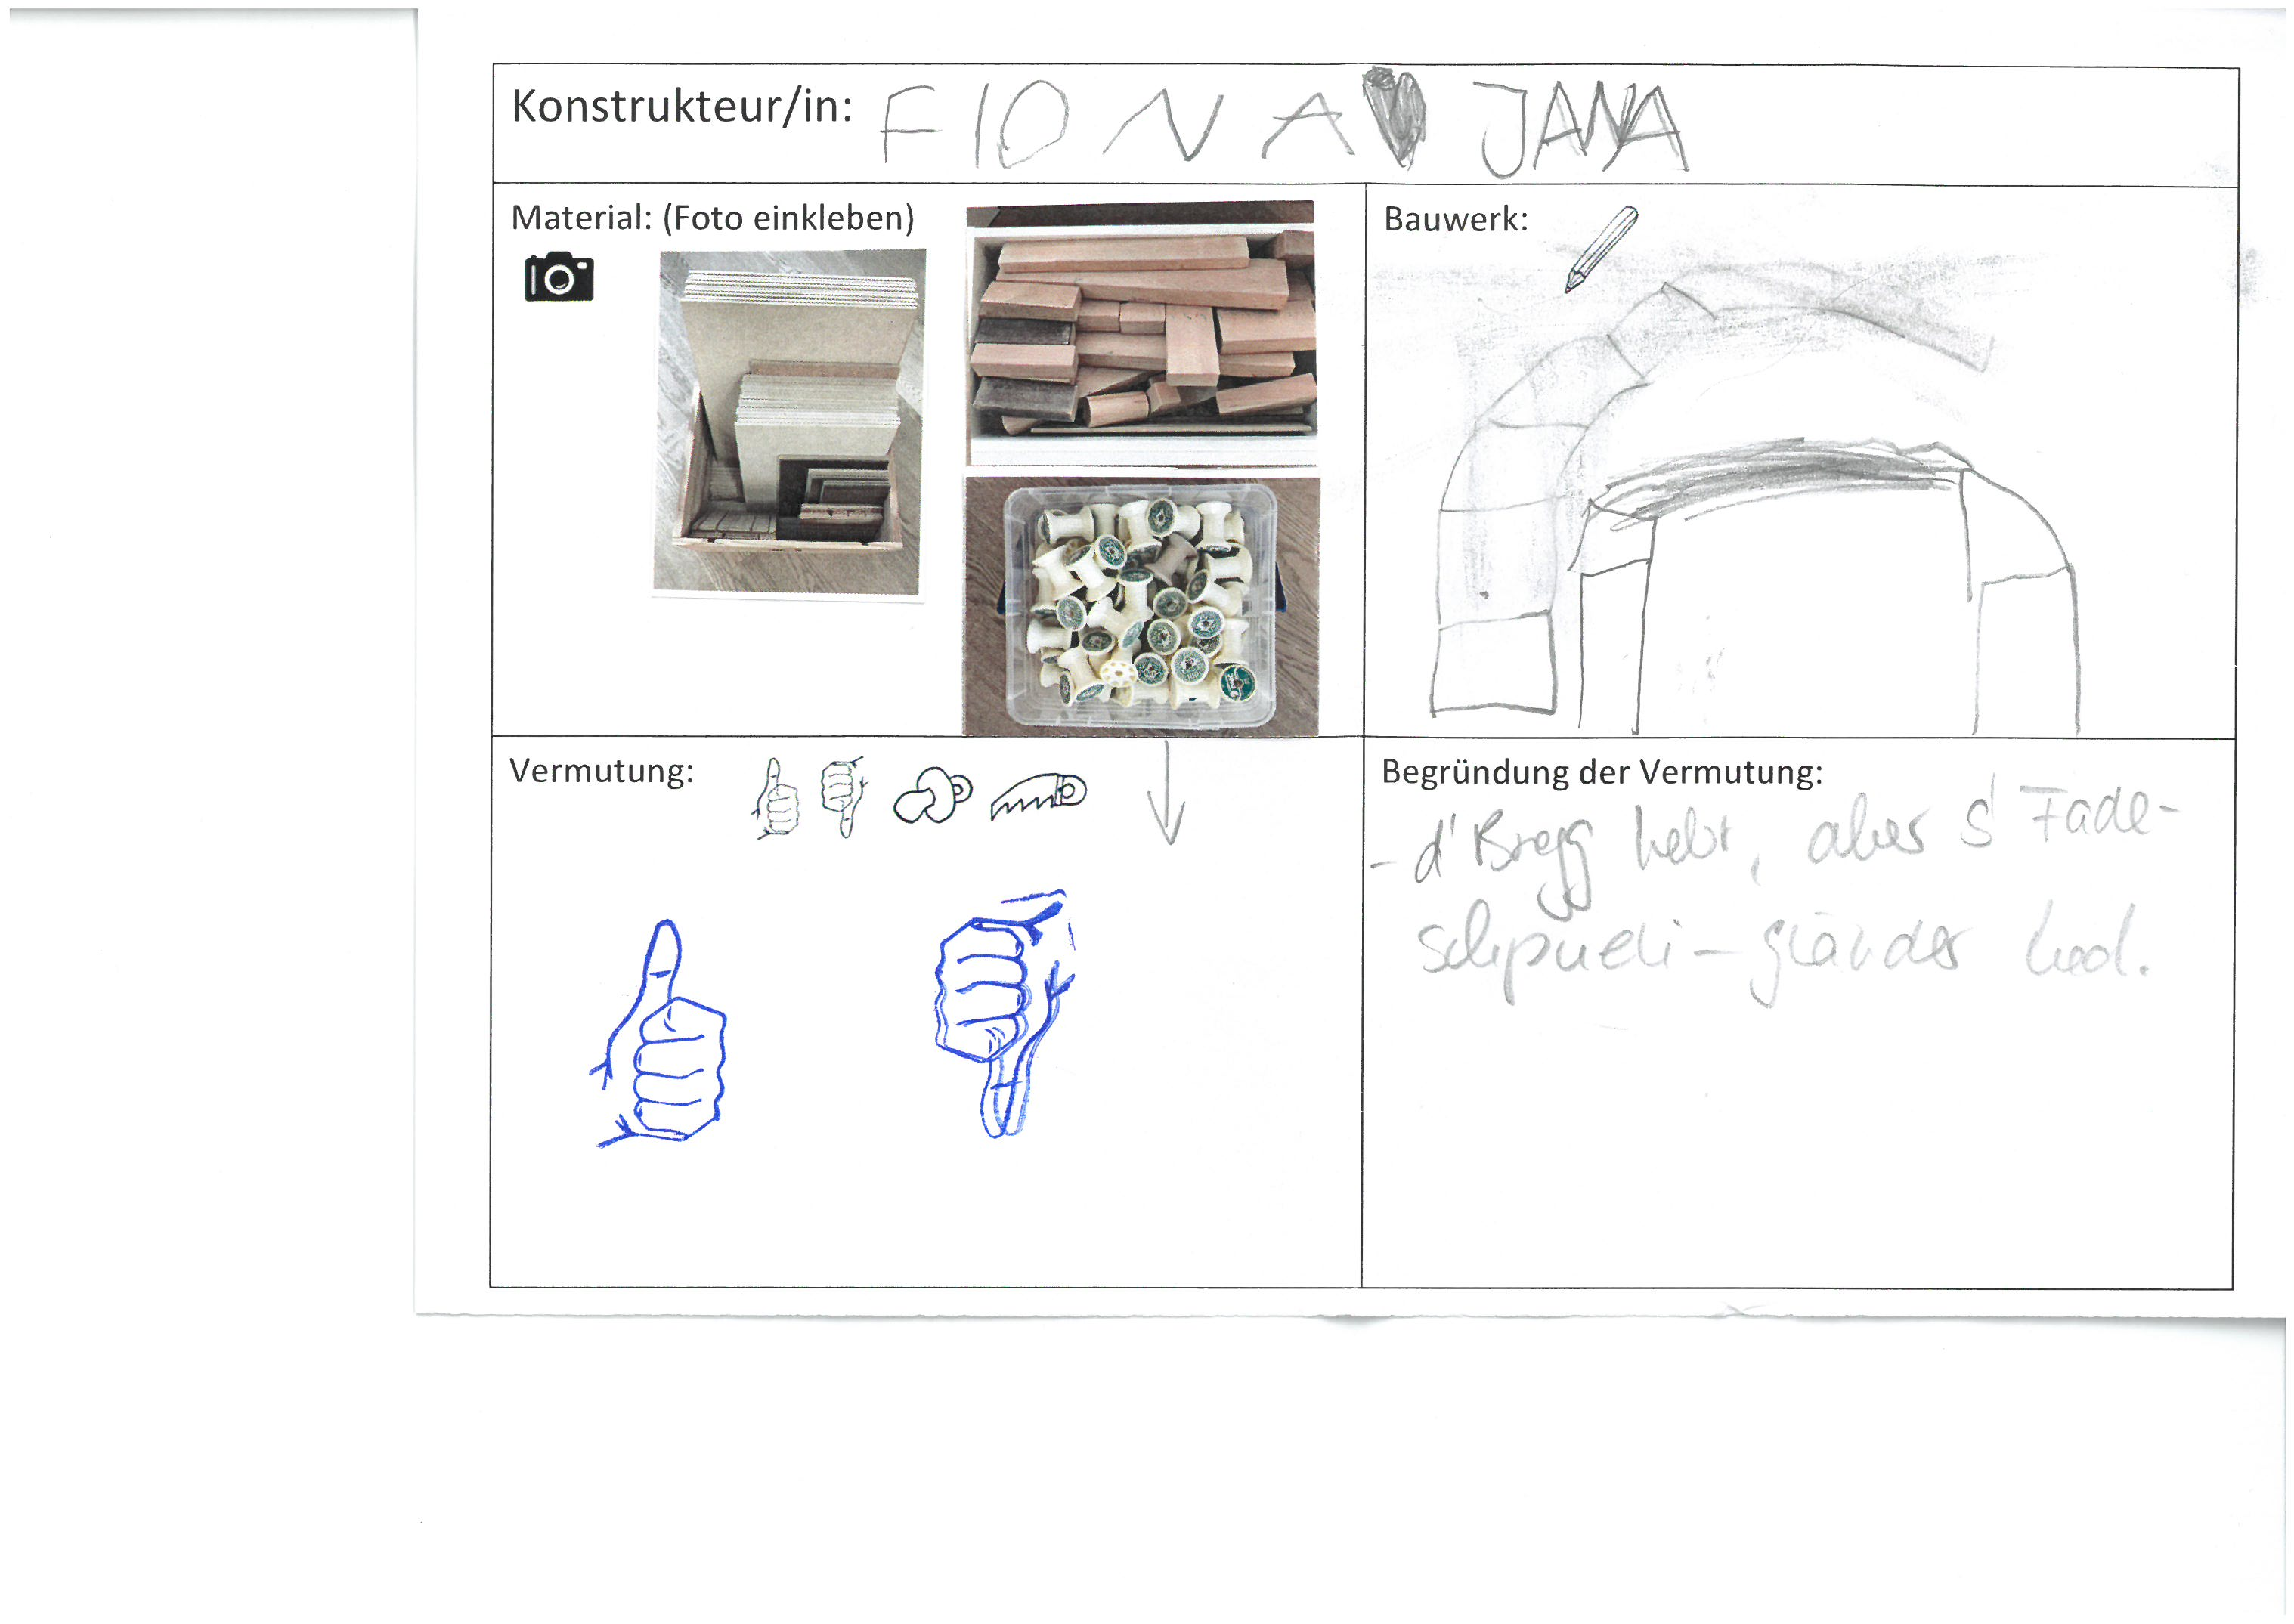 Konstrukteur/in: FIONA JANA
Material: (Foto einkleben)
Bauwerk:
Vermutung:
Begründung der Vermutung:
- d'Brogg hebt, aber s' Fade-
schpueli-gländer ned.